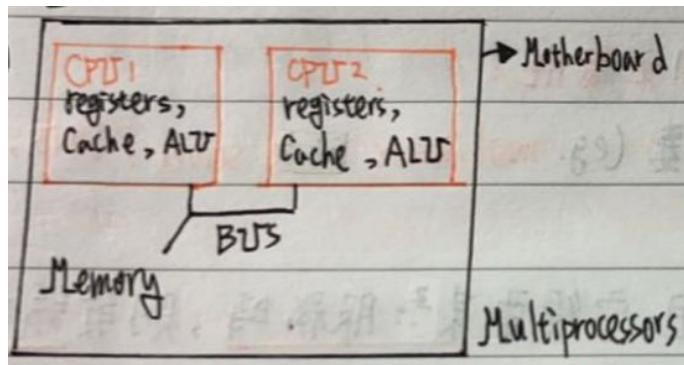 CPU1
registers,
Cache, ALU
CPU2
registers,
Cache, ALU
Motherboard
BUS
Memory
Multiprocessors
(eg.